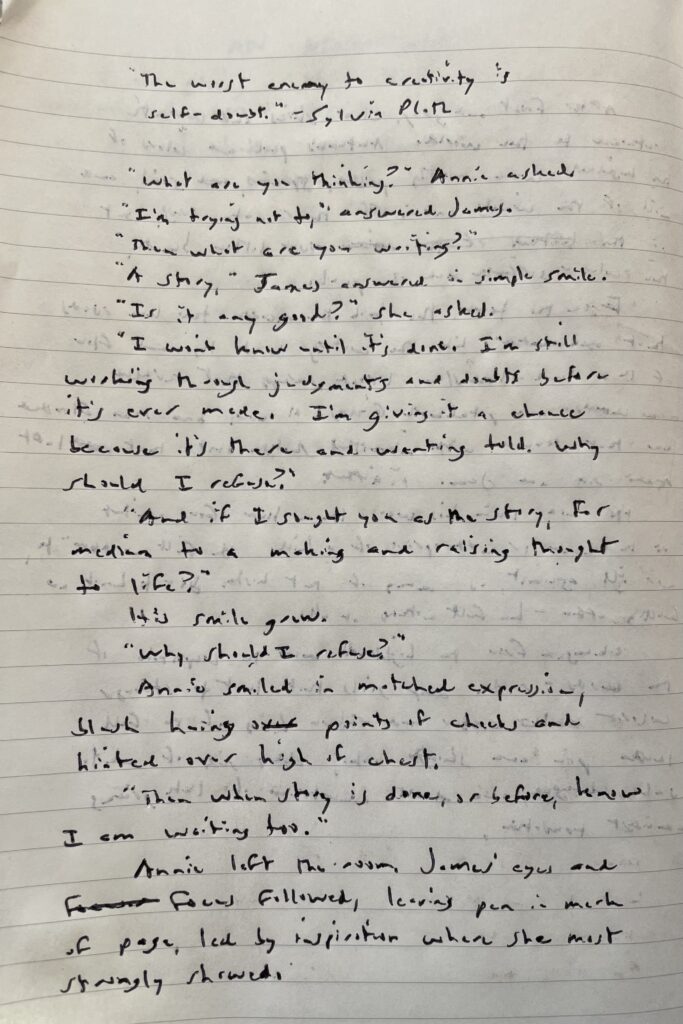 "The worst enemy to creativity is
self-doubt." - Sylvia Plath
"What are you thinking?" Annie asked.
"I'm trying not to," answered James.
"Then what are you writing?"
"A story," James answered in simple smile.
"Is it any good?" she asked.
"I won't know until it's done. I'm still
working through judgments and doubts before
it's ever made. I'm giving it a chance
because it's there and wanting told. Why
should I refuse?"
"And if I sought you as the story, for
medium to a making and raising thought
to life?"
His smile grew.
"Why should I refuse?"
Annie smiled in matched expression,
blush points of cheeks and
hinted over high of chest.
"Then when story is done, or before, know
I am waiting too."
Annie left the room. James' eyes and
focus followed, leaving pen in mark
of page, led by inspiration where she most
strongly showed.